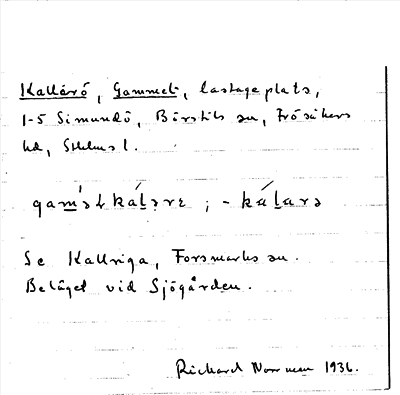 Kallarö, Gammelt, lastageplats,
1-5 Simundö, Börstils sn, Frösåkers
hd, Sthlms l.
gam̱əłkáḻərɛ ; - káḻarə
Se Kallriga, Forsmarks sn.
Beläget vid Sjögården.
Richard Norrman 1936.